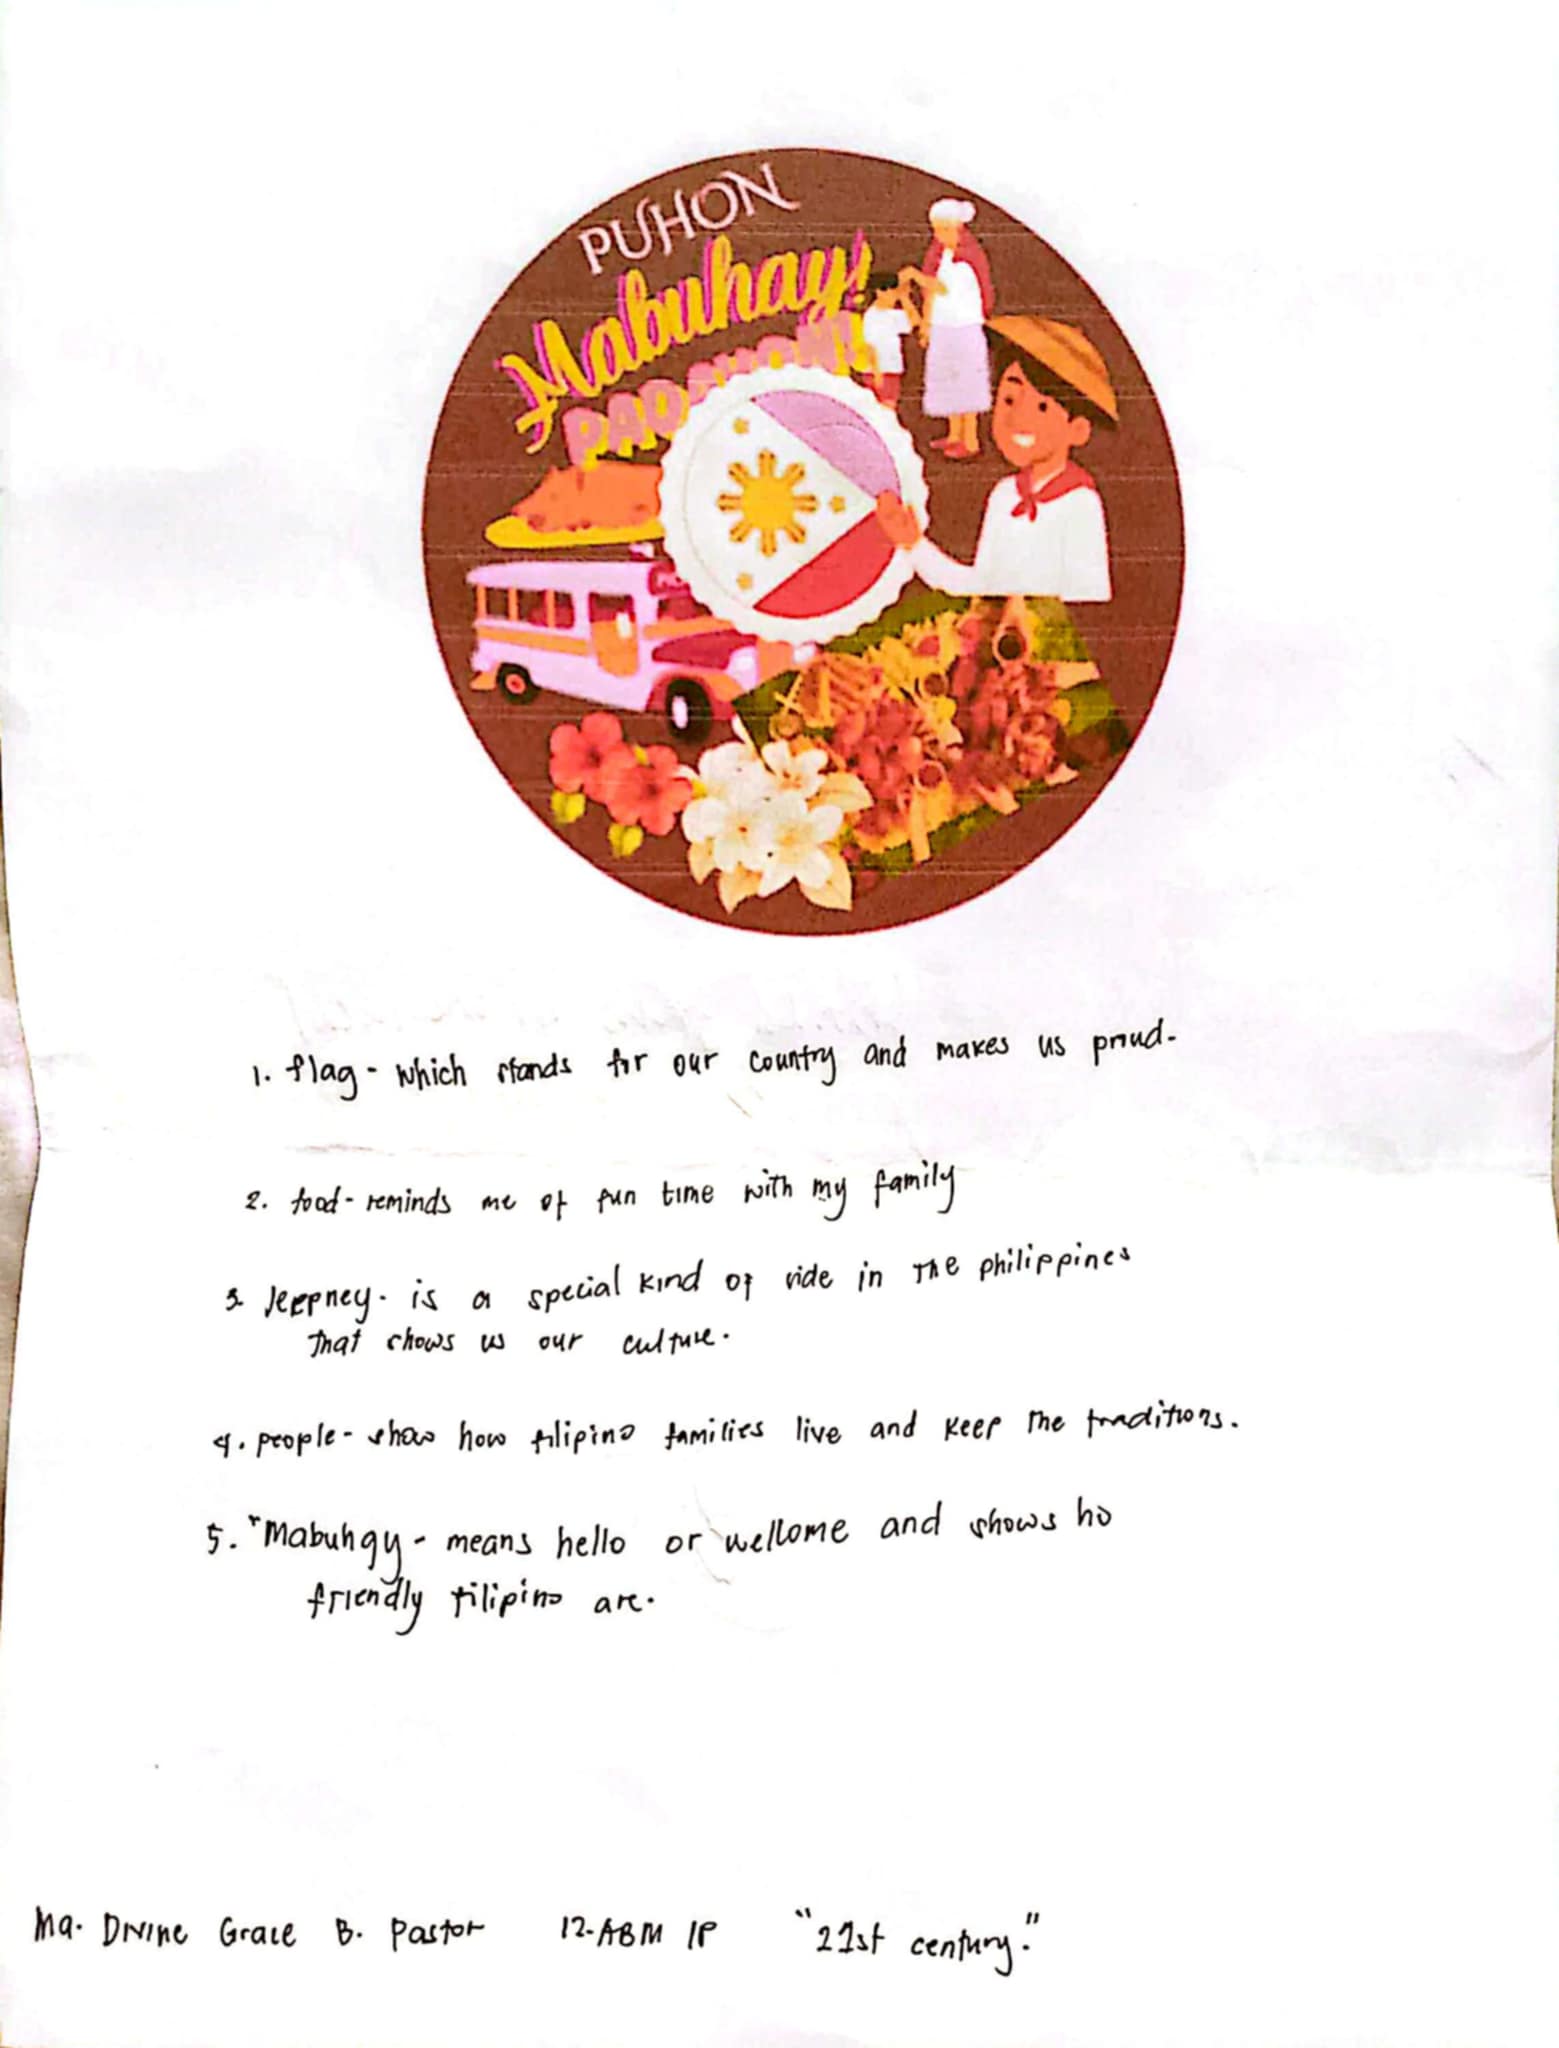 PUHON
Mabuhay!
PADAYON!
1. flag - which stands for our country and makes us proud.
2. food - reminds me of fun time with my family
3. Jeepney - is a special kind of ride in the philippines
that shows us our culture.
4. people - show how filipino families live and keep the traditions.
5. "Mabuhay - means hello or wellcome and shows ho
friendly filipino are.
Ma. Divine Grace B. Pastor 12-ABM 1P "21st century."